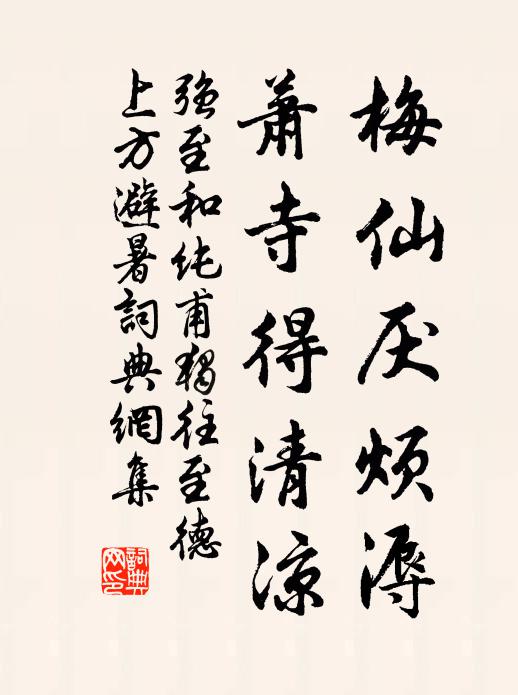 梅仙厌烦溽
萧寺得清凉
强至和纯甫獨往至德
上方避暑詞典網集
詞典网印